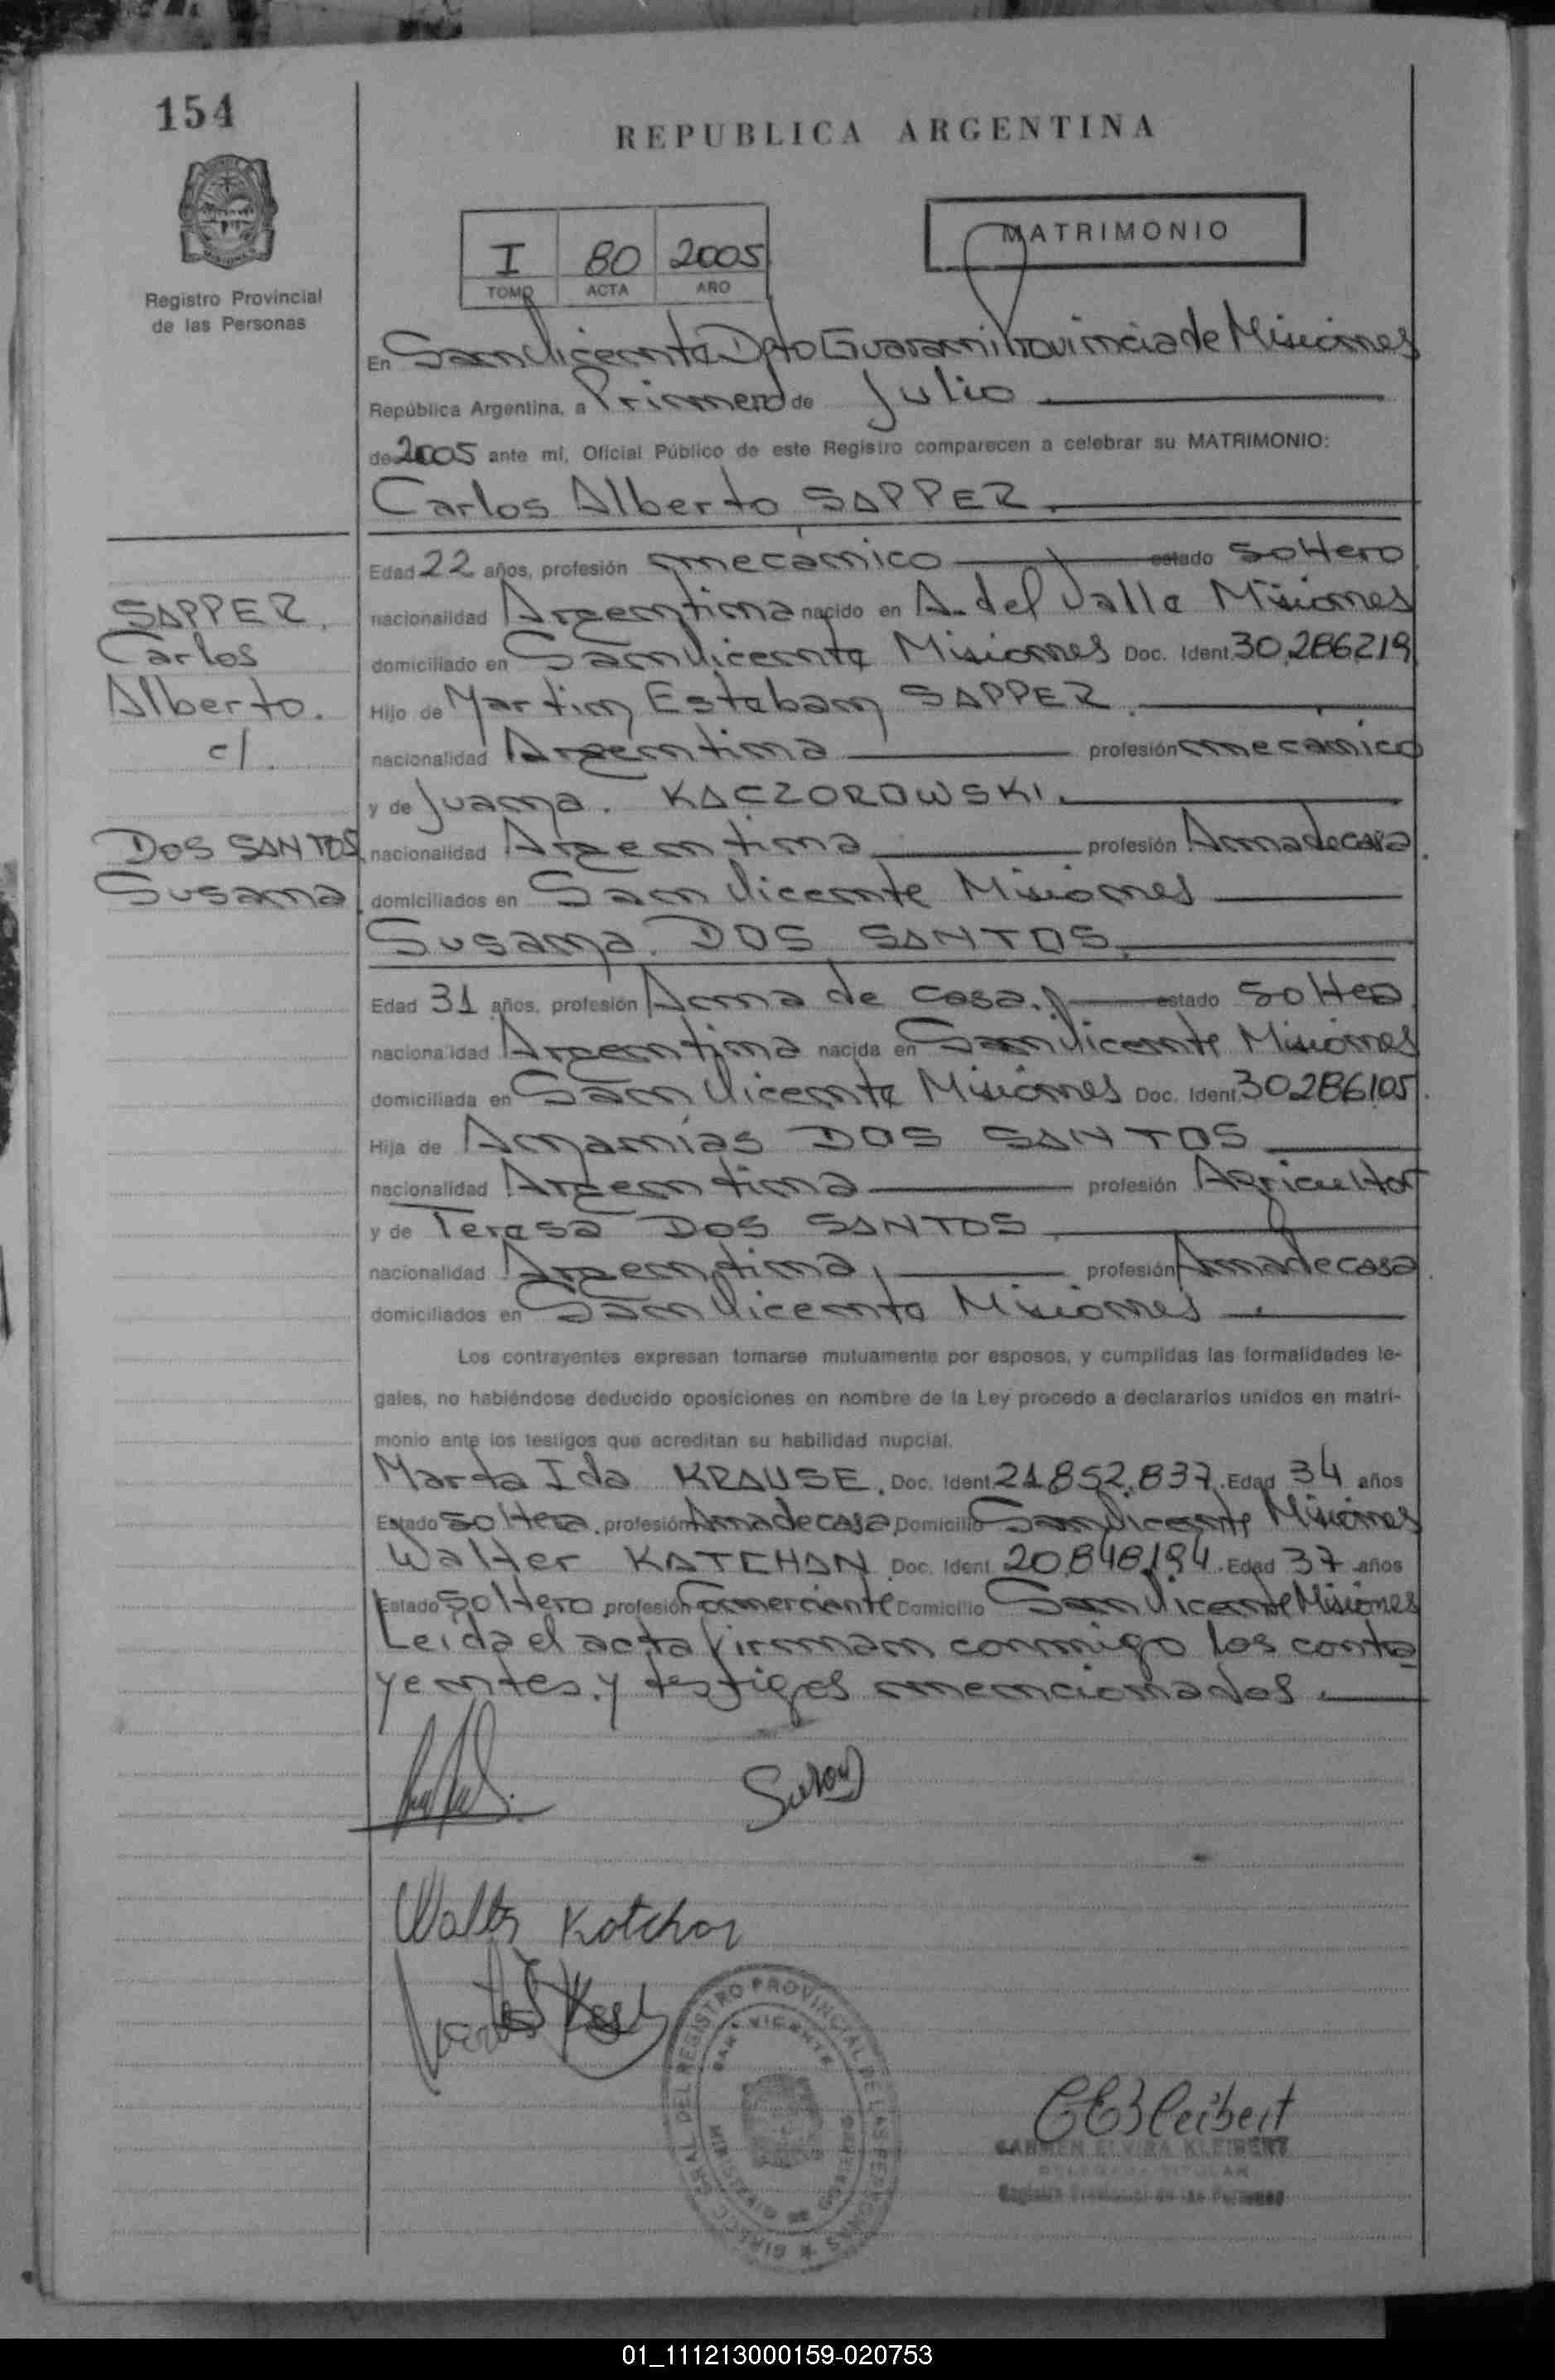 154
REPUBLICA ARGENTINA
MATRIMONIO
I 80 2005
TOMO ACTA AÑO
Registro Provincial
de las Personas
En San Vicente Dpto Guarani Provincia de Misiones
República Argentina, a Primero de Julio
de 2005 ante mí, Oficial Público de este Registro comparecen a celebrar su MATRIMONIO:
Carlos Alberto SAPPER.
Edad 22 años, profesión mecánico estado Soltero
nacionalidad Argentina nacido en A. del Valle Misiones
domiciliado en San Vicente Misiones Doc. Ident. 30.286219
Hijo de Martin Esteban SAPPER.
nacionalidad Argentina profesión mecanico
y de Juana. KACZOROWSKI.
nacionalidad Argentina profesión Amadecasa.
domiciliados en San Vicente Misiones
Susana. DOS SANTOS.
SAPPER,
Carlos
Alberto.
c/.
DOS SANTOS,
Susana
Edad 31 años, profesión Ama de casa. estado Soltera
nacionalidad Argentina nacida en San Vicente Misiones
domiciliada en San Vicente Misiones Doc. Ident. 30.286.105.
Hija de Ananías DOS SANTOS
nacionalidad Argentina profesión Agricultor
y de Teresa DOS SANTOS.
nacionalidad Argentina, profesión Amadecasa.
domiciliados en San Vicente Misiones.
Los contrayentes expresan tomarse mutuamente por esposos, y cumplidas las formalidades le-
gales, no habiéndose deducido oposiciones en nombre de la Ley procedo a declararlos unidos en matri-
monio ante los testigos que acreditan su habilidad nupcial.
Marta Ida KRAUSE. Doc. Ident. 21.852.837. Edad 34 años
Estado Soltera. profesión Amadecasa Domicilio San Vicente Misiones
Walter KATCHAN. Doc. Ident. 20.848.194. Edad 37 años
Estado Soltero profesión Comerciante Domicilio San Vicente Misiones
Leída el acta firman conmigo los contra
yentes, y testigos mencionados.
Walter Katchan
DIRECC. GRAL. DEL REGISTRO PROVINCIAL DE LAS PERSONAS
SAN VICENTE
MINISTERIO DE GOBIERNO
CEKleibert
CARMEN ELVIRA KLEIBERT
DELEGADA TITULAR
Registro Provincial de las Personas
01_111213000159-020753